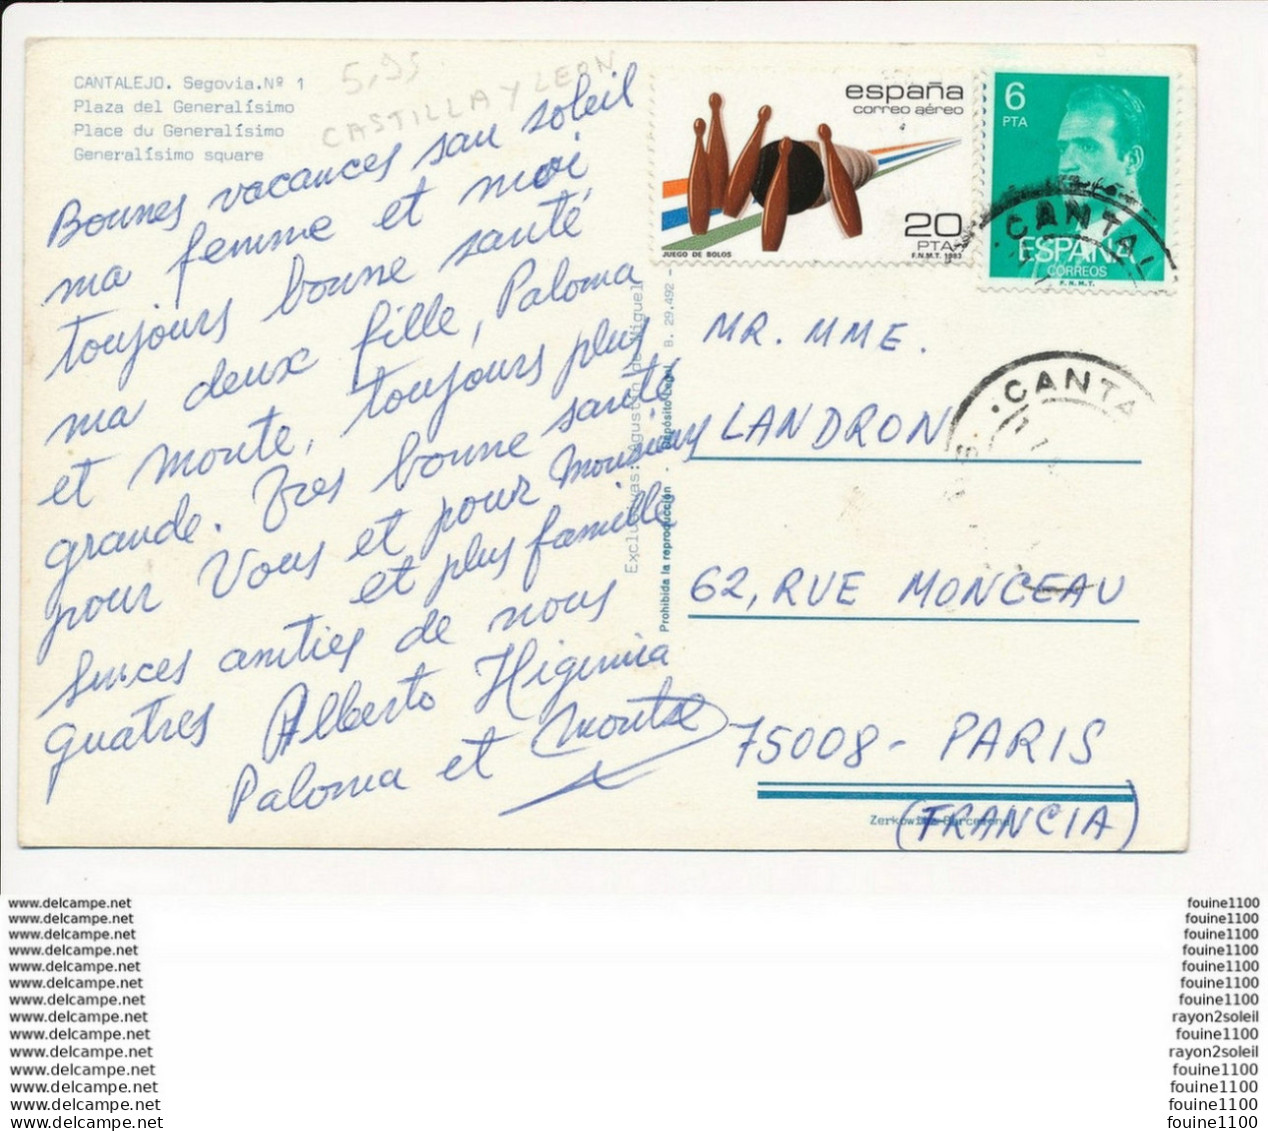 CANTALEJO. Segovia.Nº 1
Plaza del Generalísimo
Place du Generalísimo
Generalísimo square
5,95
CASTILLA Y LEON
Bonnes vacances sau soleil
ma femme et moi
toujours bonne santé,
ma deux fille, Paloma
et Monte, toujours plus
grande. Tres bonne santé
pour Vous et pour
et plus famille
amities de nous
quatres Alberto Higinia
Paloma et Montse
españa
correo aéreo
20
PTA
JUEGO DE BOLOS
F.N.M.T. 1983
6
PTA
ESPAÑA
CORREOS
F.N.M.T.
CANTAL
CANTA
Exclusivas: Agustín de Miguel
Prohibida la reproducción - Depósito Legal B. 29.492 -
MR. MME.
LANDRON
62, RUE MONCEAU
75008 - PARIS
(FRANCIA)
Zerkowitz-Barcelona
www.delcampe.net
www.delcampe.net
www.delcampe.net
www.delcampe.net
www.delcampe.net
www.delcampe.net
www.delcampe.net
www.delcampe.net
www.delcampe.net
www.delcampe.net
www.delcampe.net
www.delcampe.net
www.delcampe.net
www.delcampe.net
fouine1100
fouine1100
fouine1100
fouine1100
fouine1100
fouine1100
fouine1100
rayon2soleil
fouine1100
rayon2soleil
fouine1100
fouine1100
fouine1100
fouine1100